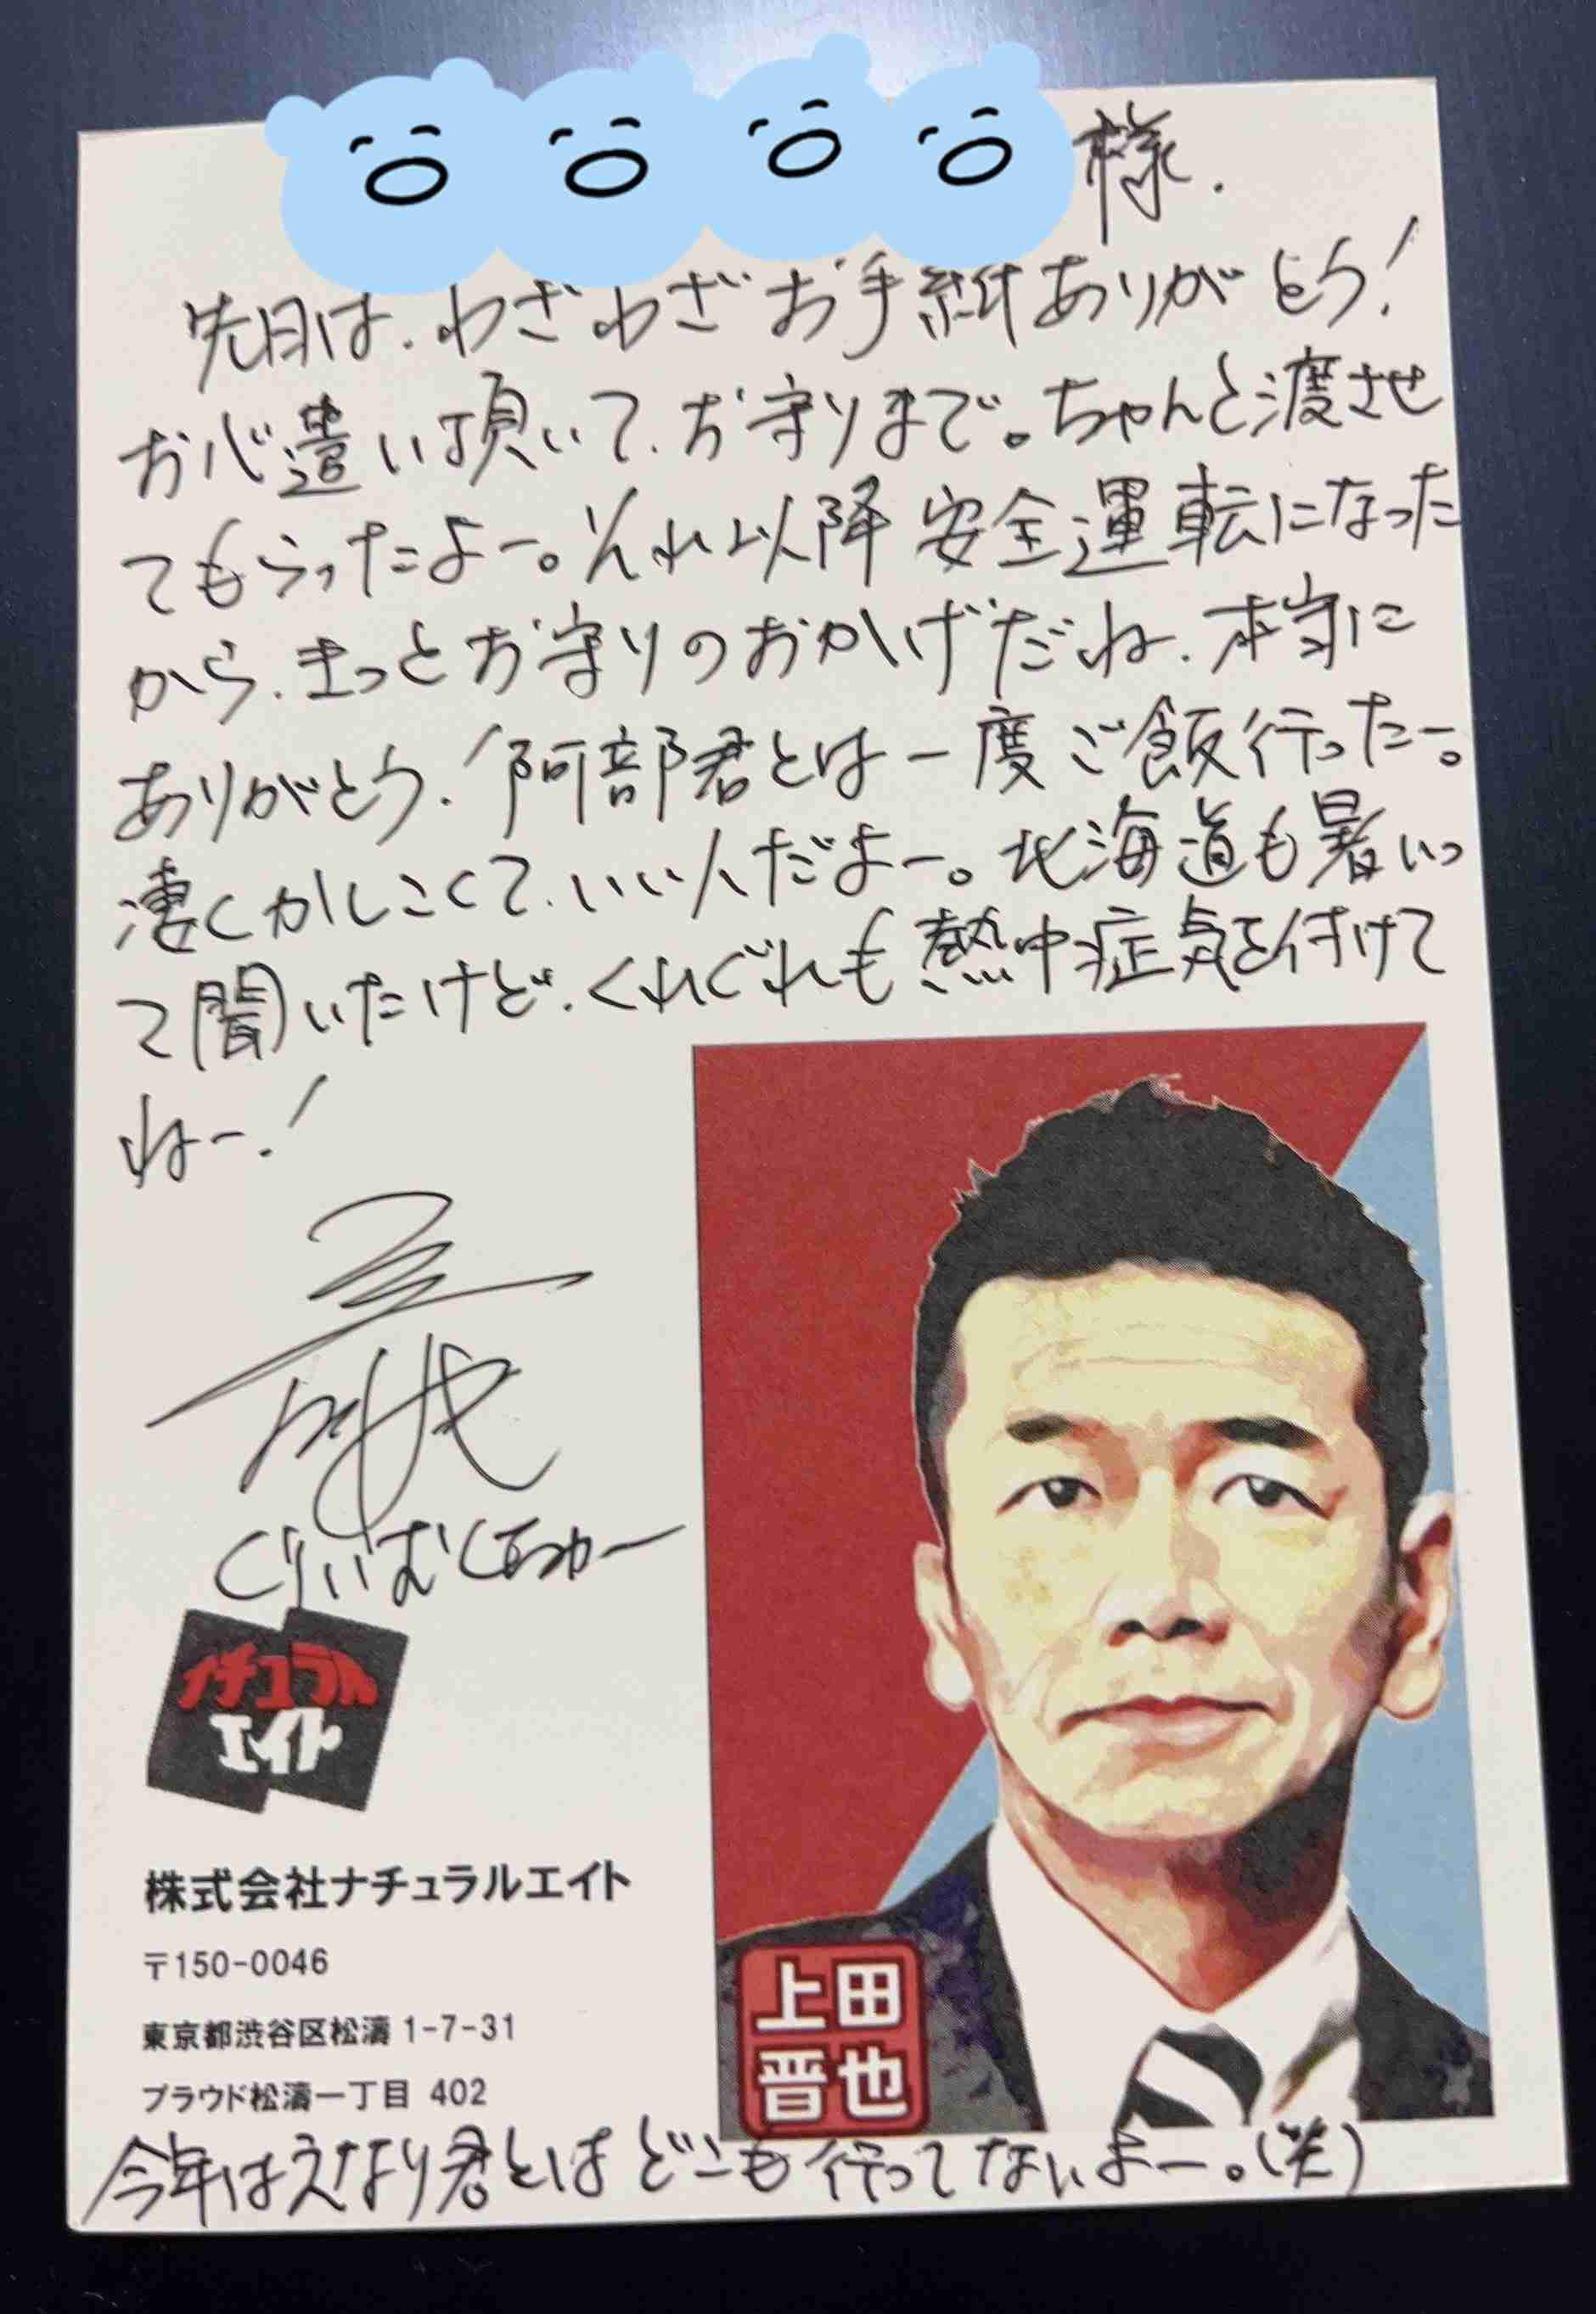 様.
先日は、わざわざお手紙ありがとう!
お心遣い頂いて、お守りまで。ちゃんと渡させ
てもらったよー。それ以降安全運転になった
から、きっとお守りのおかげだね、本当に
ありがとう!阿部君とは一度ご飯行ったー。
凄くかしこくて、いい人だよー。北海道も暑いっ
て聞いたけど、くれぐれも熱中症気を付けて
ねー!
くりぃむしちゅー
ナチュラル
エイト
株式会社ナチュラルエイト
〒150-0046
東京都渋谷区松濤 1-7-31
プラウド松濤一丁目 402
上田
晋也
今年はえなり君とはどこも行ってないよー。(笑)